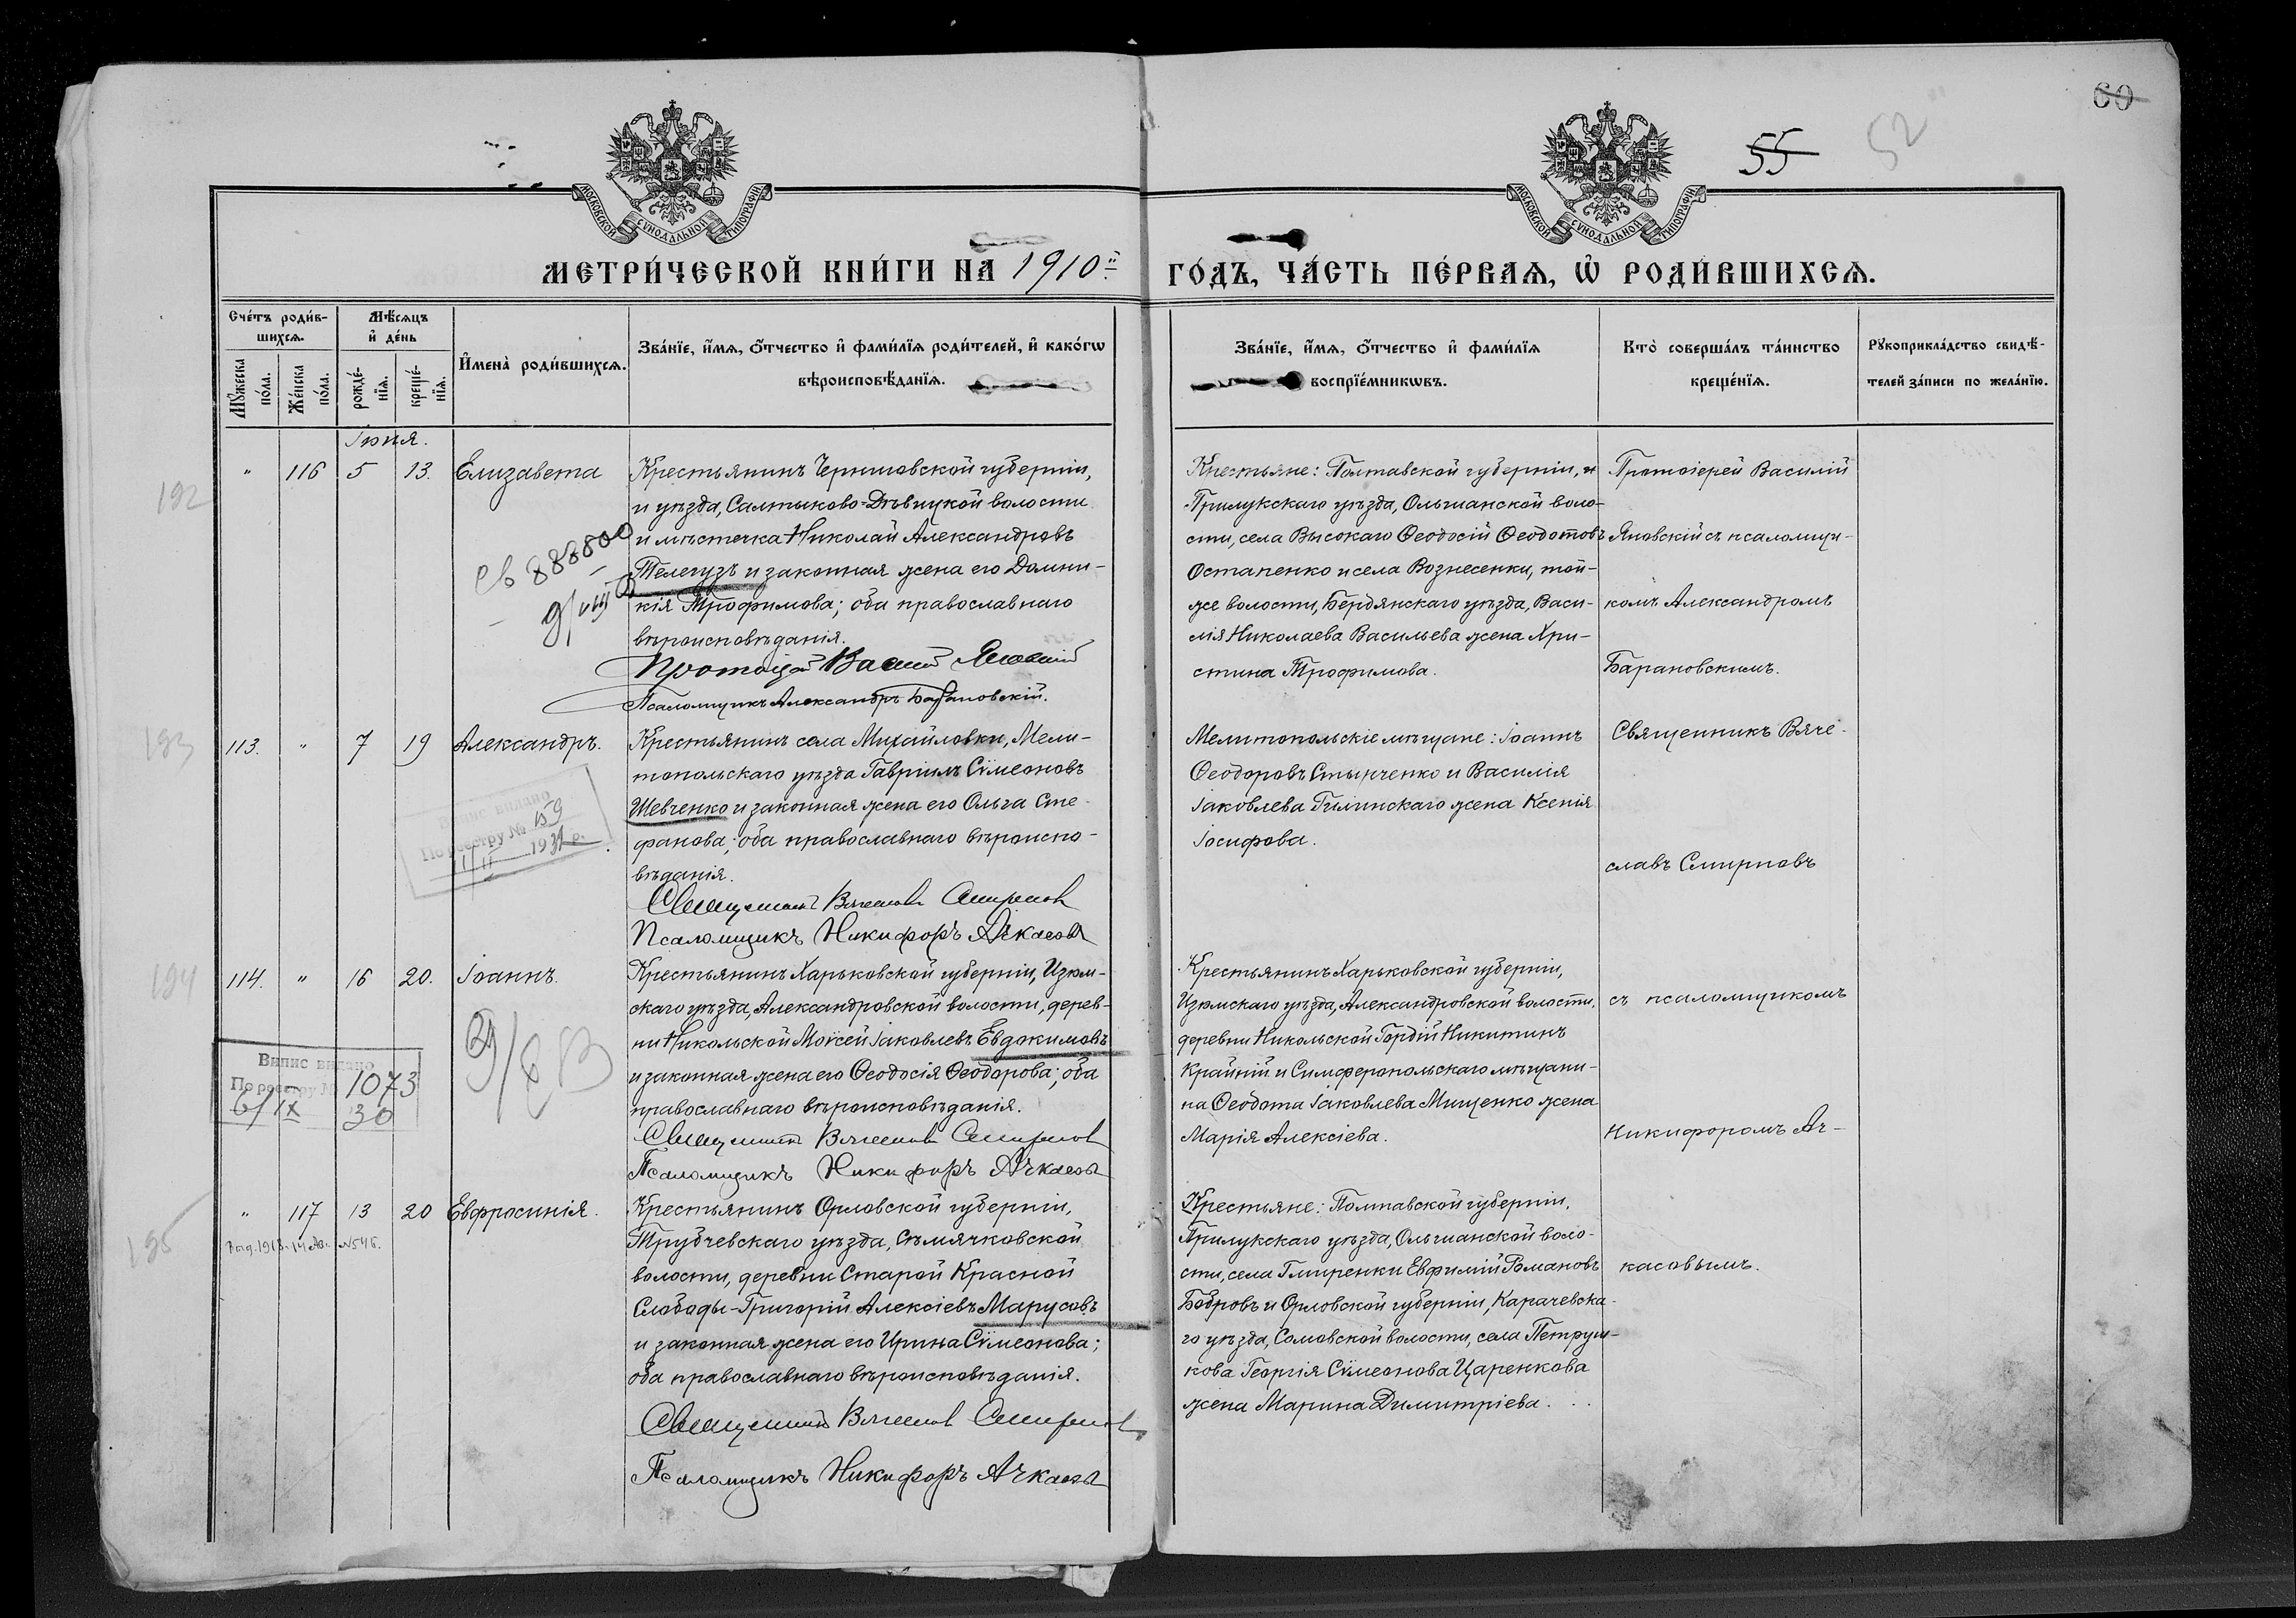 60
55
52
МОСКОВСКОЙ СѴНОДАЛЬНОЙ ТИПОГРАФІИ
МОСКОВСКОЙ СѴНОДАЛЬНОЙ ТИПОГРАФІИ
МЕТРИ́ЧЕСКОЙ КНИ́ГИ НА 1910й ГО́ДЪ, ЧА́СТЬ ПЕ́РВАѦ, Ѡ РОДИ́ВШИХСѦ.
Сче́тъ роди́в-
шихсѧ.
Мꙋ́жеска по́ла.
Же́нска по́ла.
Мѣ́сѧцъ и де́нь
рожде́-нїѧ.
креще́-нїѧ.
И́мена роди́вшихсѧ.
Зва́нїе, и́мѧ, о́тчество и фами́лїѧ роди́телей, и како́гѡ
вѣроисповѣ́данїѧ.
Зва́нїе, и́мѧ, о́тчество и фами́лїѧ
воспрїе́мникѡвъ.
Кто̀ соверша́лъ та́инство
креще́нїѧ.
Рꙋкоприкла́дство свидѣ́-
телей за́писи по жела́нїю.
Іюня.
192
" 116 5 13. Елизавета
Крестьянинъ Черниговской губерніи,
и уѣзда, Салтыково-Дѣвицкой волости
и мѣстечка Николай Александровъ
Телегузъ и законная жена его Домни-
кія Трофимова; оба православнаго
вѣроисповѣданія.
Протоіерей Василій Яновскій
Псаломщикъ Александръ Барановскій.
Крестьяне: Полтавской губерніи, и
Прилукскаго уѣзда, Ольшанской воло-
сти, села Высокаго Ѳеодосій Ѳеодотовъ
Остапенко и села Вознесенки, той-
же волости, Бердянскаго уѣзда, Васи-
лія Николаева Васильева жена Хри-
стина Трофимова.
Протоіерей Василій
Яновскій съ псаломщи-
комъ Александромъ
Барановскимъ.
193
113. " 7 19 Александръ.
Випис видано
По реєстру № 159
11/II 1931 р.
Крестьянинъ села Михайловки, Мели-
топольскаго уѣзда Гавріилъ Сѵмеоновъ
Шевченко и законная жена его Ольга Сте-
фанова; оба православнаго вѣроиспо-
вѣданія.
Священникъ Вячеславъ Смирновъ
Псаломщикъ Никифоръ Ачкасовъ
Мелитопольскіе мѣщане: Іоаннъ
Ѳеодоровъ и Василія
Іаковлева Гилинскаго жена Ксенія
Іосифова.
Священникъ Вяче-
славъ Смирновъ
194
114. " 16 20. Іоаннъ.
Випис видано
По реєстру № 1073
6/IX 30
Крестьянинъ Харьковской губерніи, Изюм-
скаго уѣзда, Александровской волости, дерев-
ни Никольской Моѵсей Іаковлевъ Евдокимовъ
и законная жена его Ѳеодосія Ѳеодорова; оба
православнаго вѣроисповѣданія.
Священникъ Вячеславъ Смирновъ
Псаломщикъ Никифоръ Ачкасовъ
Крестьянинъ Харьковской губерніи,
Изюмскаго уѣзда, Александровской волости.
деревни Никольской Гордій Никитинъ
Крайній и Симферопольскаго мѣщани-
на Ѳеодота Іаковлева Мищенко жена
Марія Алексіева.
съ псаломщикомъ
Никифоромъ Ач-
195
" 117 13 20 Евфросинія.
Выд. 1918. 14 Ав. №546.
Крестьянинъ Орловской губерніи,
Трубчевскаго уѣзда, Сѣмячковской
волости, деревни Старой Красной
Слободы-Григорій Алексіевъ Марусовъ
и законная жена его Ирина Сѵмеонова;
оба православнаго вѣроисповѣданія.
Священникъ Вячеславъ Смирновъ
Псаломщикъ Никифоръ Ачкасовъ
Крестьяне: Полтавской губерніи,
Прилукскаго уѣзда, Ольшанской воло-
сти, села Гмиренки Евфимій Романовъ
Бобровъ и Орловской губерніи, Карачевска-
го уѣзда, Сомовской волости, села Петруш-
кова Георгія Сѵмеонова Царенкова
жена Марина Димитріева.
касовымъ.